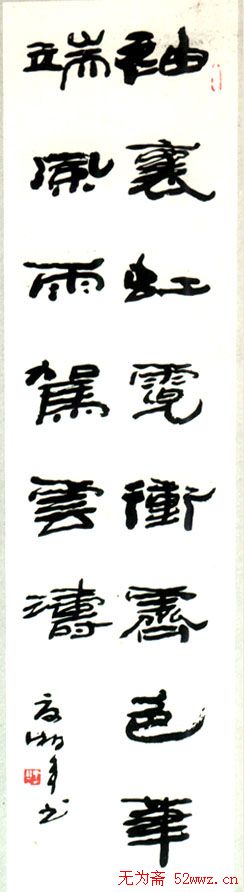 袖裏虹霓衝霽色筆
端風雨駕雲濤
无为斋 52wwz.cn